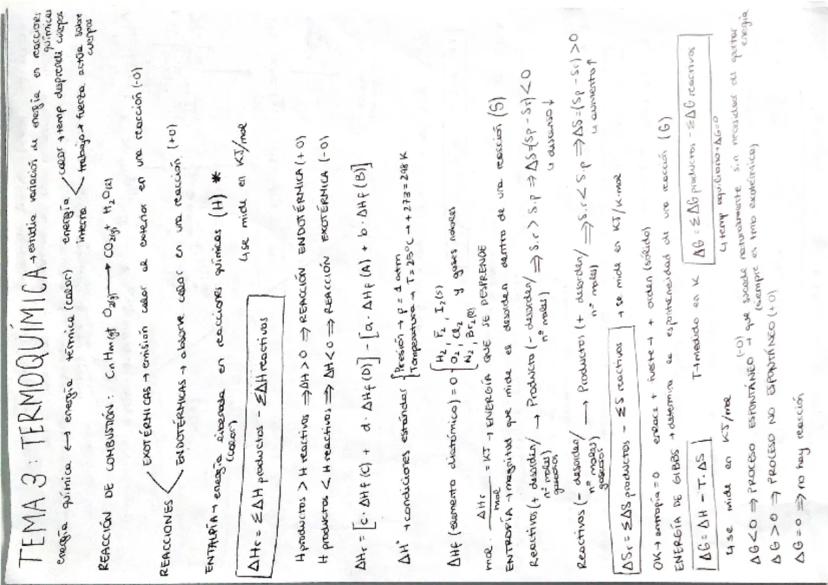 TEMA 3: TERMOQUÍMICA → estudia variación de energía en reacciones químicas
energía química ↔ energía térmica (calor)   energía interna < calor → temp desprende cuerpos
trabajo → fuerza actúa sobre cuerpos
REACCIÓN DE COMBUSTIÓN: CnHn(g) O2(g) → CO2(g) + H2O(l)
REACCIONES < EXOTÉRMICAS → emisión calor al exterior en una reacción (-0)
ENDOTÉRMICAS → absorve calor en una reacción (+0)
ENTALPÍA → energía liberada en reacciones químicas (H) *
(calor)
ΔHr = ΣΔH productos - ΣΔH reactivos   ↳ se mide en KJ/mol
H productos > H reactivos ⇒ ΔH > 0 ⇒ REACCIÓN ENDOTÉRMICA (+0)
H productos < H reactivos ⇒ ΔH < 0 ⇒ REACCIÓN EXOTÉRMICA (-0)
ΔHr = [c · ΔHf (C) + d · ΔHf (D)] - [a · ΔHf (A) + b · ΔHf (B)]
ΔH° → condiciones estándar { Presión → p = 1 atm
Temperatura → T = 25°C → +273 = 298 K
ΔHf (elemento diatómico) = 0 { H2, F2, I2(s)
O2, Cl2, y gases nobles
N2, Br2(l)
mol. ΔHr/mol = KJ → ENERGÍA QUE SE DESPRENDE
ENTROPÍA → magnitud que mide el desorden dentro de una reacción (S)
Reactivos (+ desorden/ nº moles) gaseosos → Producto (- desorden/ nº moles) ⇒ Sr > Sp ⇒ ΔS = (Sp - Sr) < 0
↳ descenso ↓
Reactivos (- desorden/ nº moles) gaseosos → Productos (+ desorden/ nº moles) ⇒ Sr < Sp ⇒ ΔS = (Sp - Sr) > 0
↳ aumento ↑
ΔSr = ΣΔS productos - ΣS reactivos → se mide en KJ/K·mol
0K → entropía = 0   enlace + fuerte → + orden (sólido)
ENERGÍA DE GIBBS → determina la espontaneidad de una reacción (G)
ΔG = ΔH - T·ΔS   T → medido en K   ΔG = ΣΔG productos - ΣΔG reactivos
↳ se mide en KJ/mol   ↳ temp equilibrio → ΔG = 0
(-0)
ΔG < 0 ⇒ PROCESO ESPONTÁNEO → que sucede naturalmente sin necesidad de energía
ΔG > 0 ⇒ PROCESO NO ESPONTÁNEO (+0)
ΔG = 0 ⇒ no hay reacción